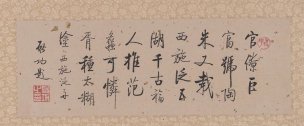 官僚巨
富號陶
朱又載
西施泛五
湖千古福
人推范
蠡可憐
胥種太糊
塗 西施泛舟
啟功題